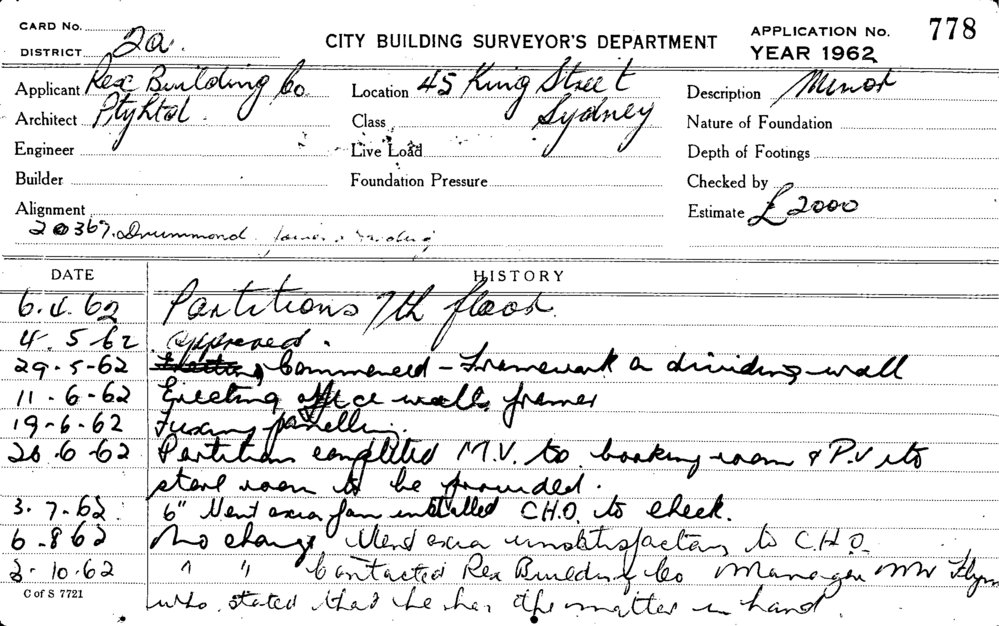 CARD No.
DISTRICT 2a.
CITY BUILDING SURVEYOR'S DEPARTMENT
APPLICATION No. 778
YEAR 1962
Applicant Rex Building Co
Location 45 King Street
Description Minor
Architect Pty Ltd
Class Sydney
Nature of Foundation
Engineer
Live Load
Depth of Footings
Builder
Foundation Pressure
Checked by
Alignment
Estimate £2000
20367. Drummond
DATE HISTORY
6.4.62 Partitions 7th floor.
4.5-62 approved.
29-5-62 Commenced - Framework on dividing wall
11-6-62 Erecting office walls frames
19-6-62 Fixing panelling.
26-6-62 Partitions completed M.V. to booking room & P.V. to
store room to be provided.
3.7.62 6" Vent axia fan installed C.H.O. to check.
6-8 62 No change Vent axia unsatisfactory to C.H.O.
3-10-62 " " Contacted Rex Building Co Manager Mr Flynn
who stated that he has the matter in hand.
C of S 7721